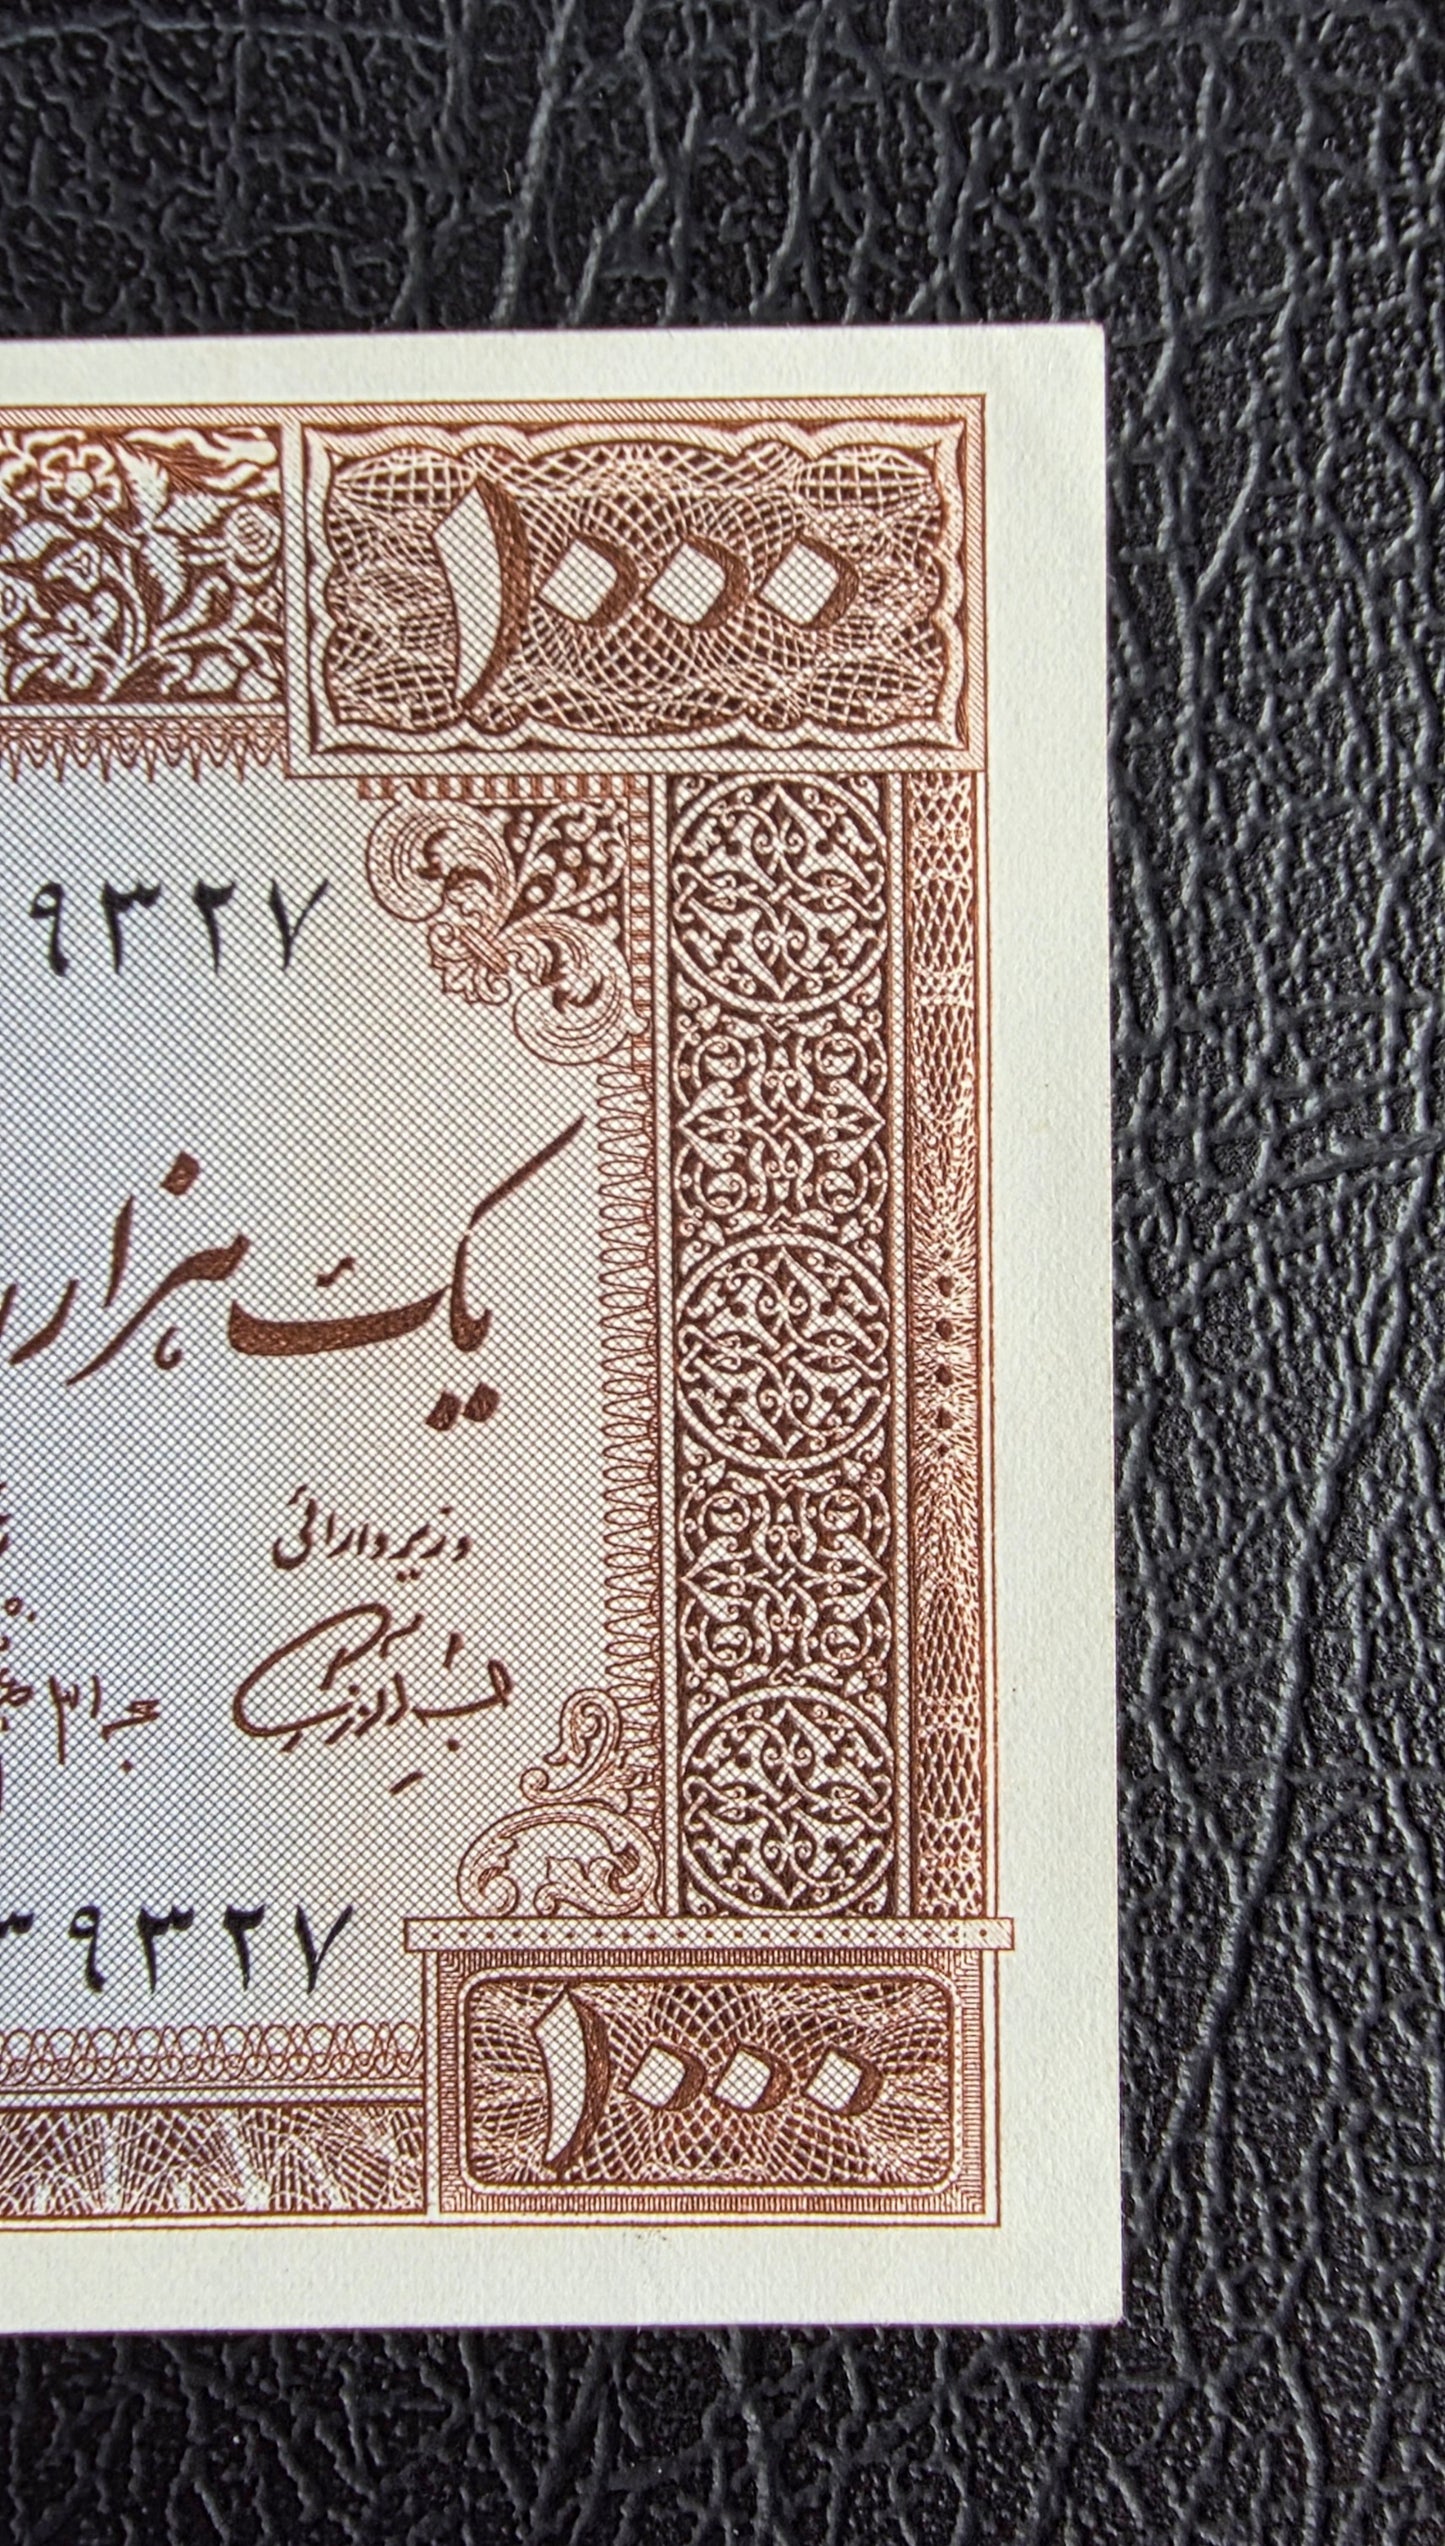 ۱۰۰۰
۹۳۲۷
یک هزار
وزیر دارائی
۳۹۳۲۷
۱۰۰۰